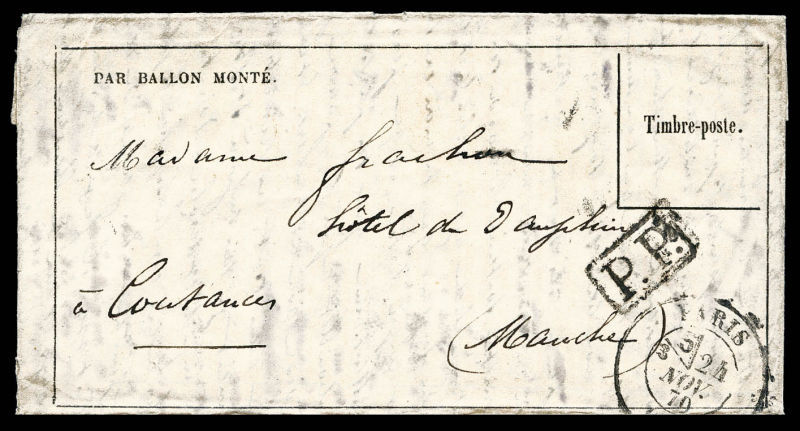 PAR BALLON MONTÉ.
Timbre-poste.
Madame Frachon
hôtel du Dauphin
P.P.
à Coutances
(Manche)
PARIS
24
NOV.
70